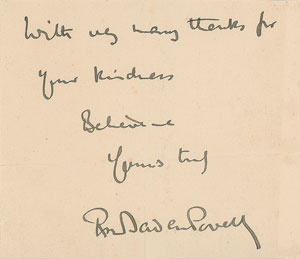 With very many thanks for
your kindness
Believe me
Yours truly
RSS Baden Powell